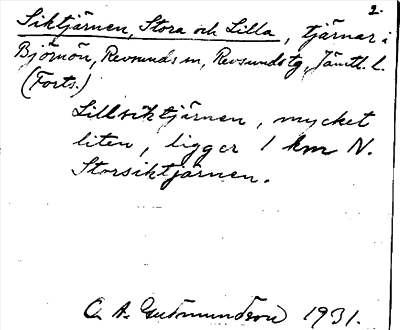 2.
Siktjärnen, Stora och Lilla, tjärnar i
Björnön, Revsunds sn, Revsunds tg, Jämtl. l.
(Forts.)
Lillsiktjärnen, mycket
liten, ligger 1 km N.
Storsiktjärnen.
O. A. Gudmundson 1931.